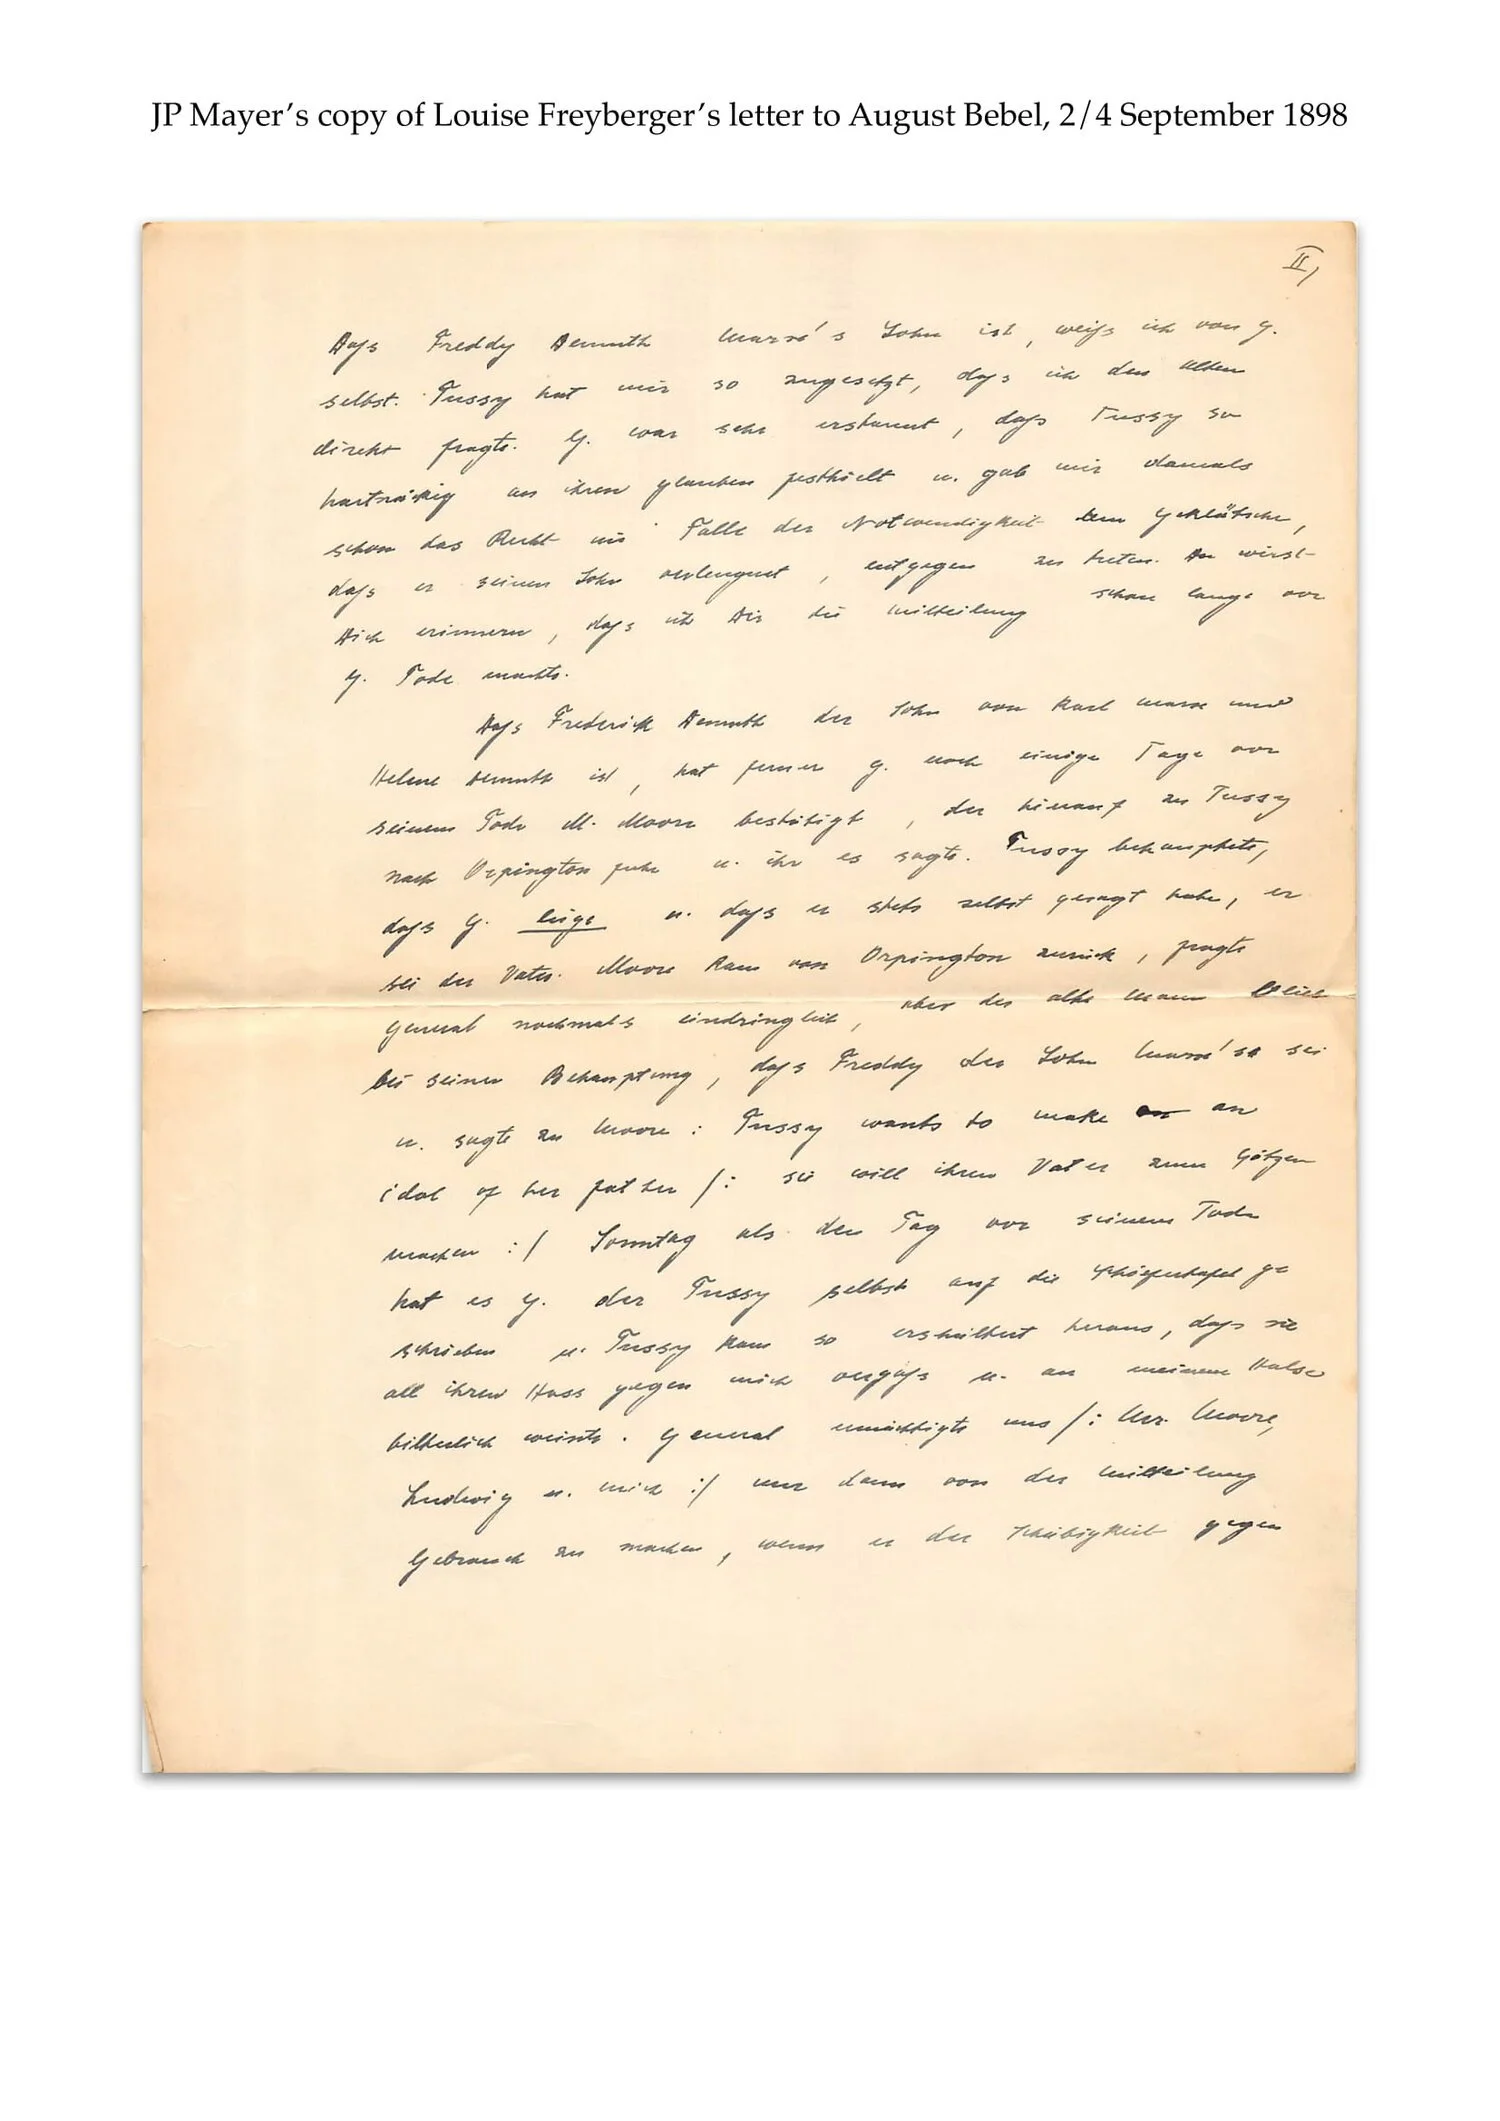 JP Mayer's copy of Louise Freyberger's letter to August Bebel, 2/4 September 1898
II,
Dass Freddy Demuth Marx's Sohn ist, weiss ich von G.
selbst. Tussy hat mir so zugesetzt, dass ich den Alten
direkt fragte. G. war sehr erstaunt, dass Tussy so
hartnäckig an ihrem Glauben festhielt u. gab mir damals
schon das Recht im Falle der Notwendigkeit dem Geklätsche,
dass er seinen Sohn verleugnet, entgegen zu treten. Du wirst
Dich erinnern, dass ich Dir die Mitteilung schon lange vor
G. Tode machte.
Dass Frederick Demuth der Sohn von Karl Marx und
Helene Demuth ist, hat ferner G. noch einige Tage vor
seinem Tode M. Moore bestätigt, der hinauf zu Tussy
nach Orpington fuhr u. ihr es sagte. Tussy behauptete,
dass G. lüge u. dass er stets selbst gesagt habe, er
sei der Vater. Moore kam von Orpington zurück, fragte
General nochmals eindringlich, aber der alte Mann blieb
bei seiner Behauptung, dass Freddy der Sohn Marx's sei
u. sagte zu Moore: Tussy wants to make an
idol of her father /: sie will ihren Vater zum Götzen
machen :/ Sonntag als den Tag vor seinem Tode
hat es G. der Tussy selbst auf die Schiefertafel ge
schrieben u. Tussy kam so erschüttert heraus, dass sie
all ihren Hass gegen mich vergass u. an meinem Halse
bitterlich weinte. General ermächtigte uns /: Mr. Moore,
Ludwig u. mich :/ nur dann von der Mitteilung
Gebrauch zu machen, wenn er der Schäbigkeit gegen